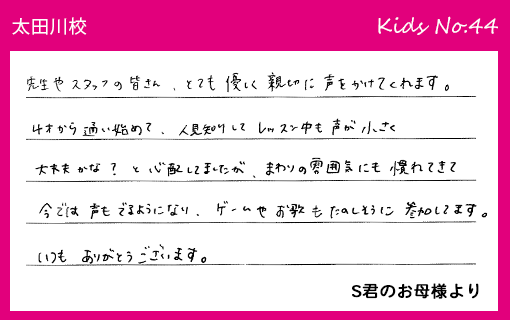 太田川校
Kids No.44
先生やスタッフの皆さん、とても優しく親切に声をかけてくれます。
4才から通い始めて、人見知りしてレッスン中も声が小さく
大丈夫かな？と心配してましたが、まわりの雰囲気にも慣れてきて
今では声もでるようになり、ゲームやお歌もたのしそうに参加してます。
いつもありがとうございます。
S君のお母様より